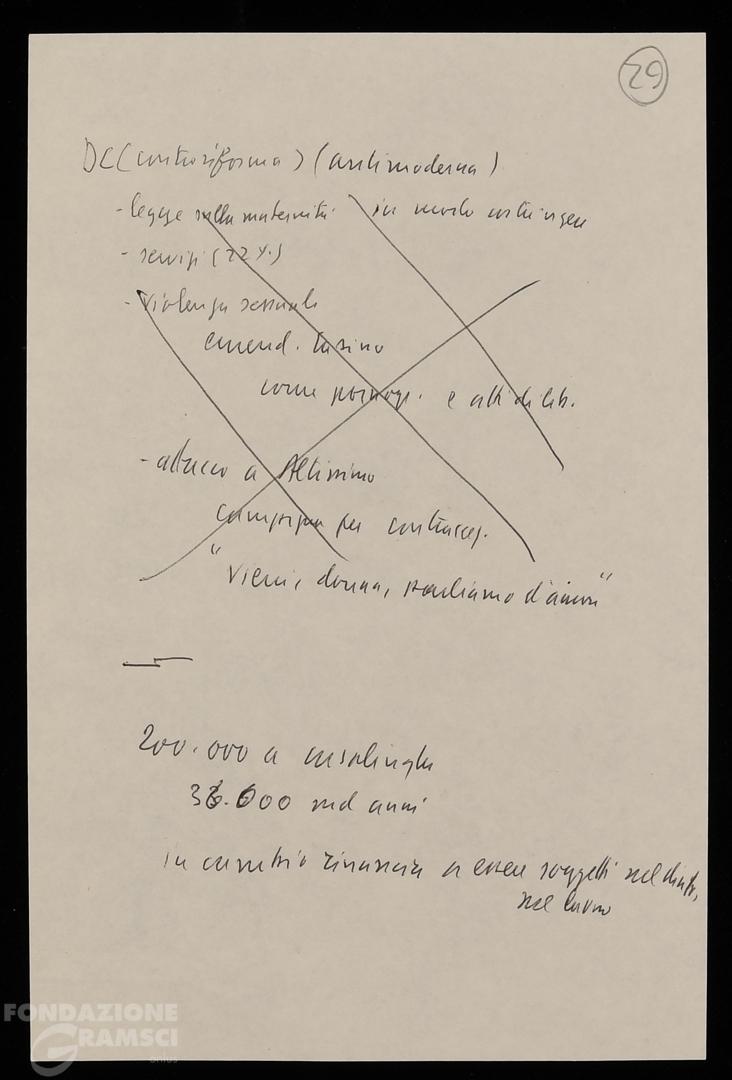 29
DC (controriforma) (antimoderna)
- legge sulla maternità in modo
- servizi (22 %)
- violenza sessuale
emend. Casini
come pornogr. e atti di lib.
- attacco a Altissimo
campagna per contraccez.
"Vieni, donna, parliamo d'amore"
200.000 a casalinghe
36.000 md anni
in cambio rinuncia a essere soggetti nel
nel lavoro
FONDAZIONE
GRAMSCI
onlus